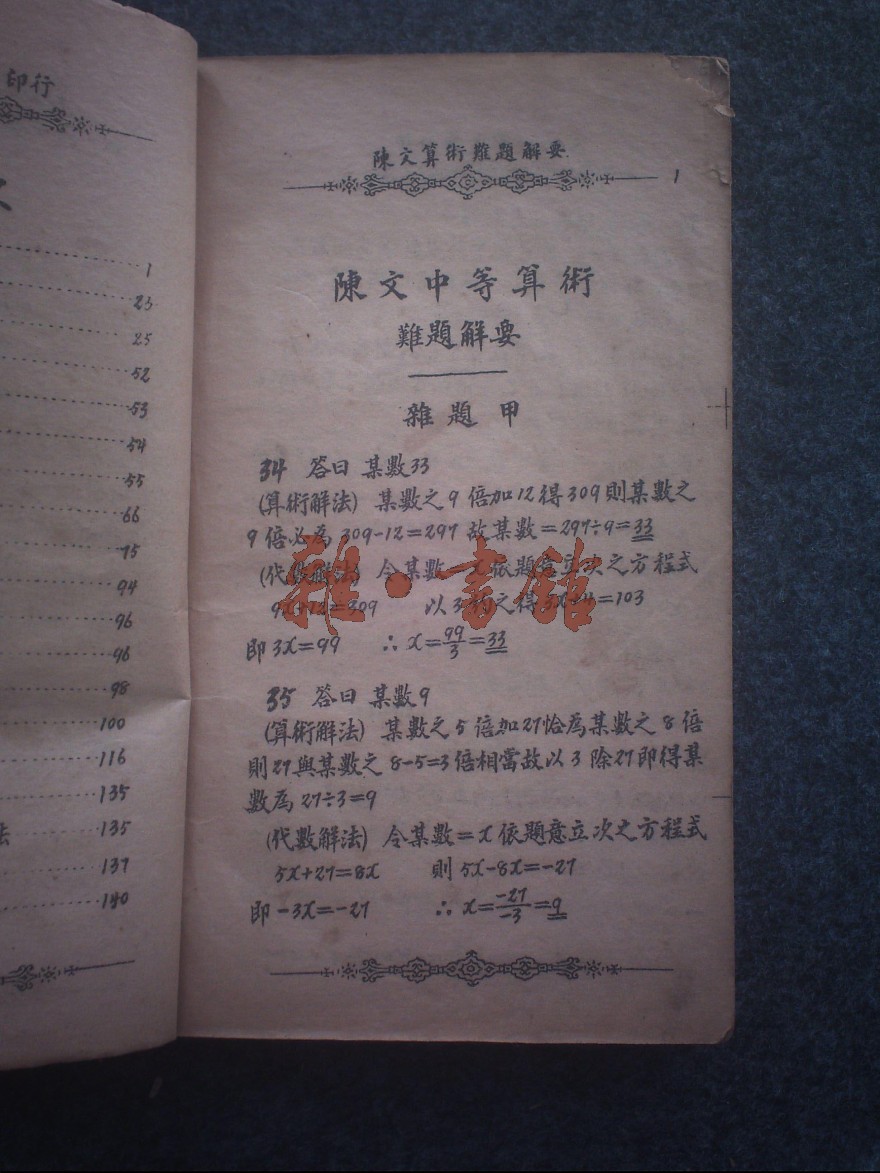 印行
1
23
25
52
53
54
55
66
75
94
96
96
98
100
116
135
法 135
137
140
陳文算術難題解要
1
陳文中等算術
難題解要
雜題甲
34 答曰 某數33
(算術解法) 某數之9倍加12得309則某數之
9倍必為309-12=297 故某數=297÷9=33
(代數解法) 令某數=x依題意立次之方程式
9x+12=309 以3約之得3x+4=103
即3x=99 ∴x=99/3=33
35 答曰 某數9
(算術解法) 某數之5倍加27恰為某數之8倍
則27與某數之8-5=3倍相當故以3除27即得某
數為27÷3=9
(代數解法) 令某數=x依題意立次之方程式
5x+27=8x 則5x-8x=-27
即-3x=-27 ∴x=-27/-3=9
雜·書館